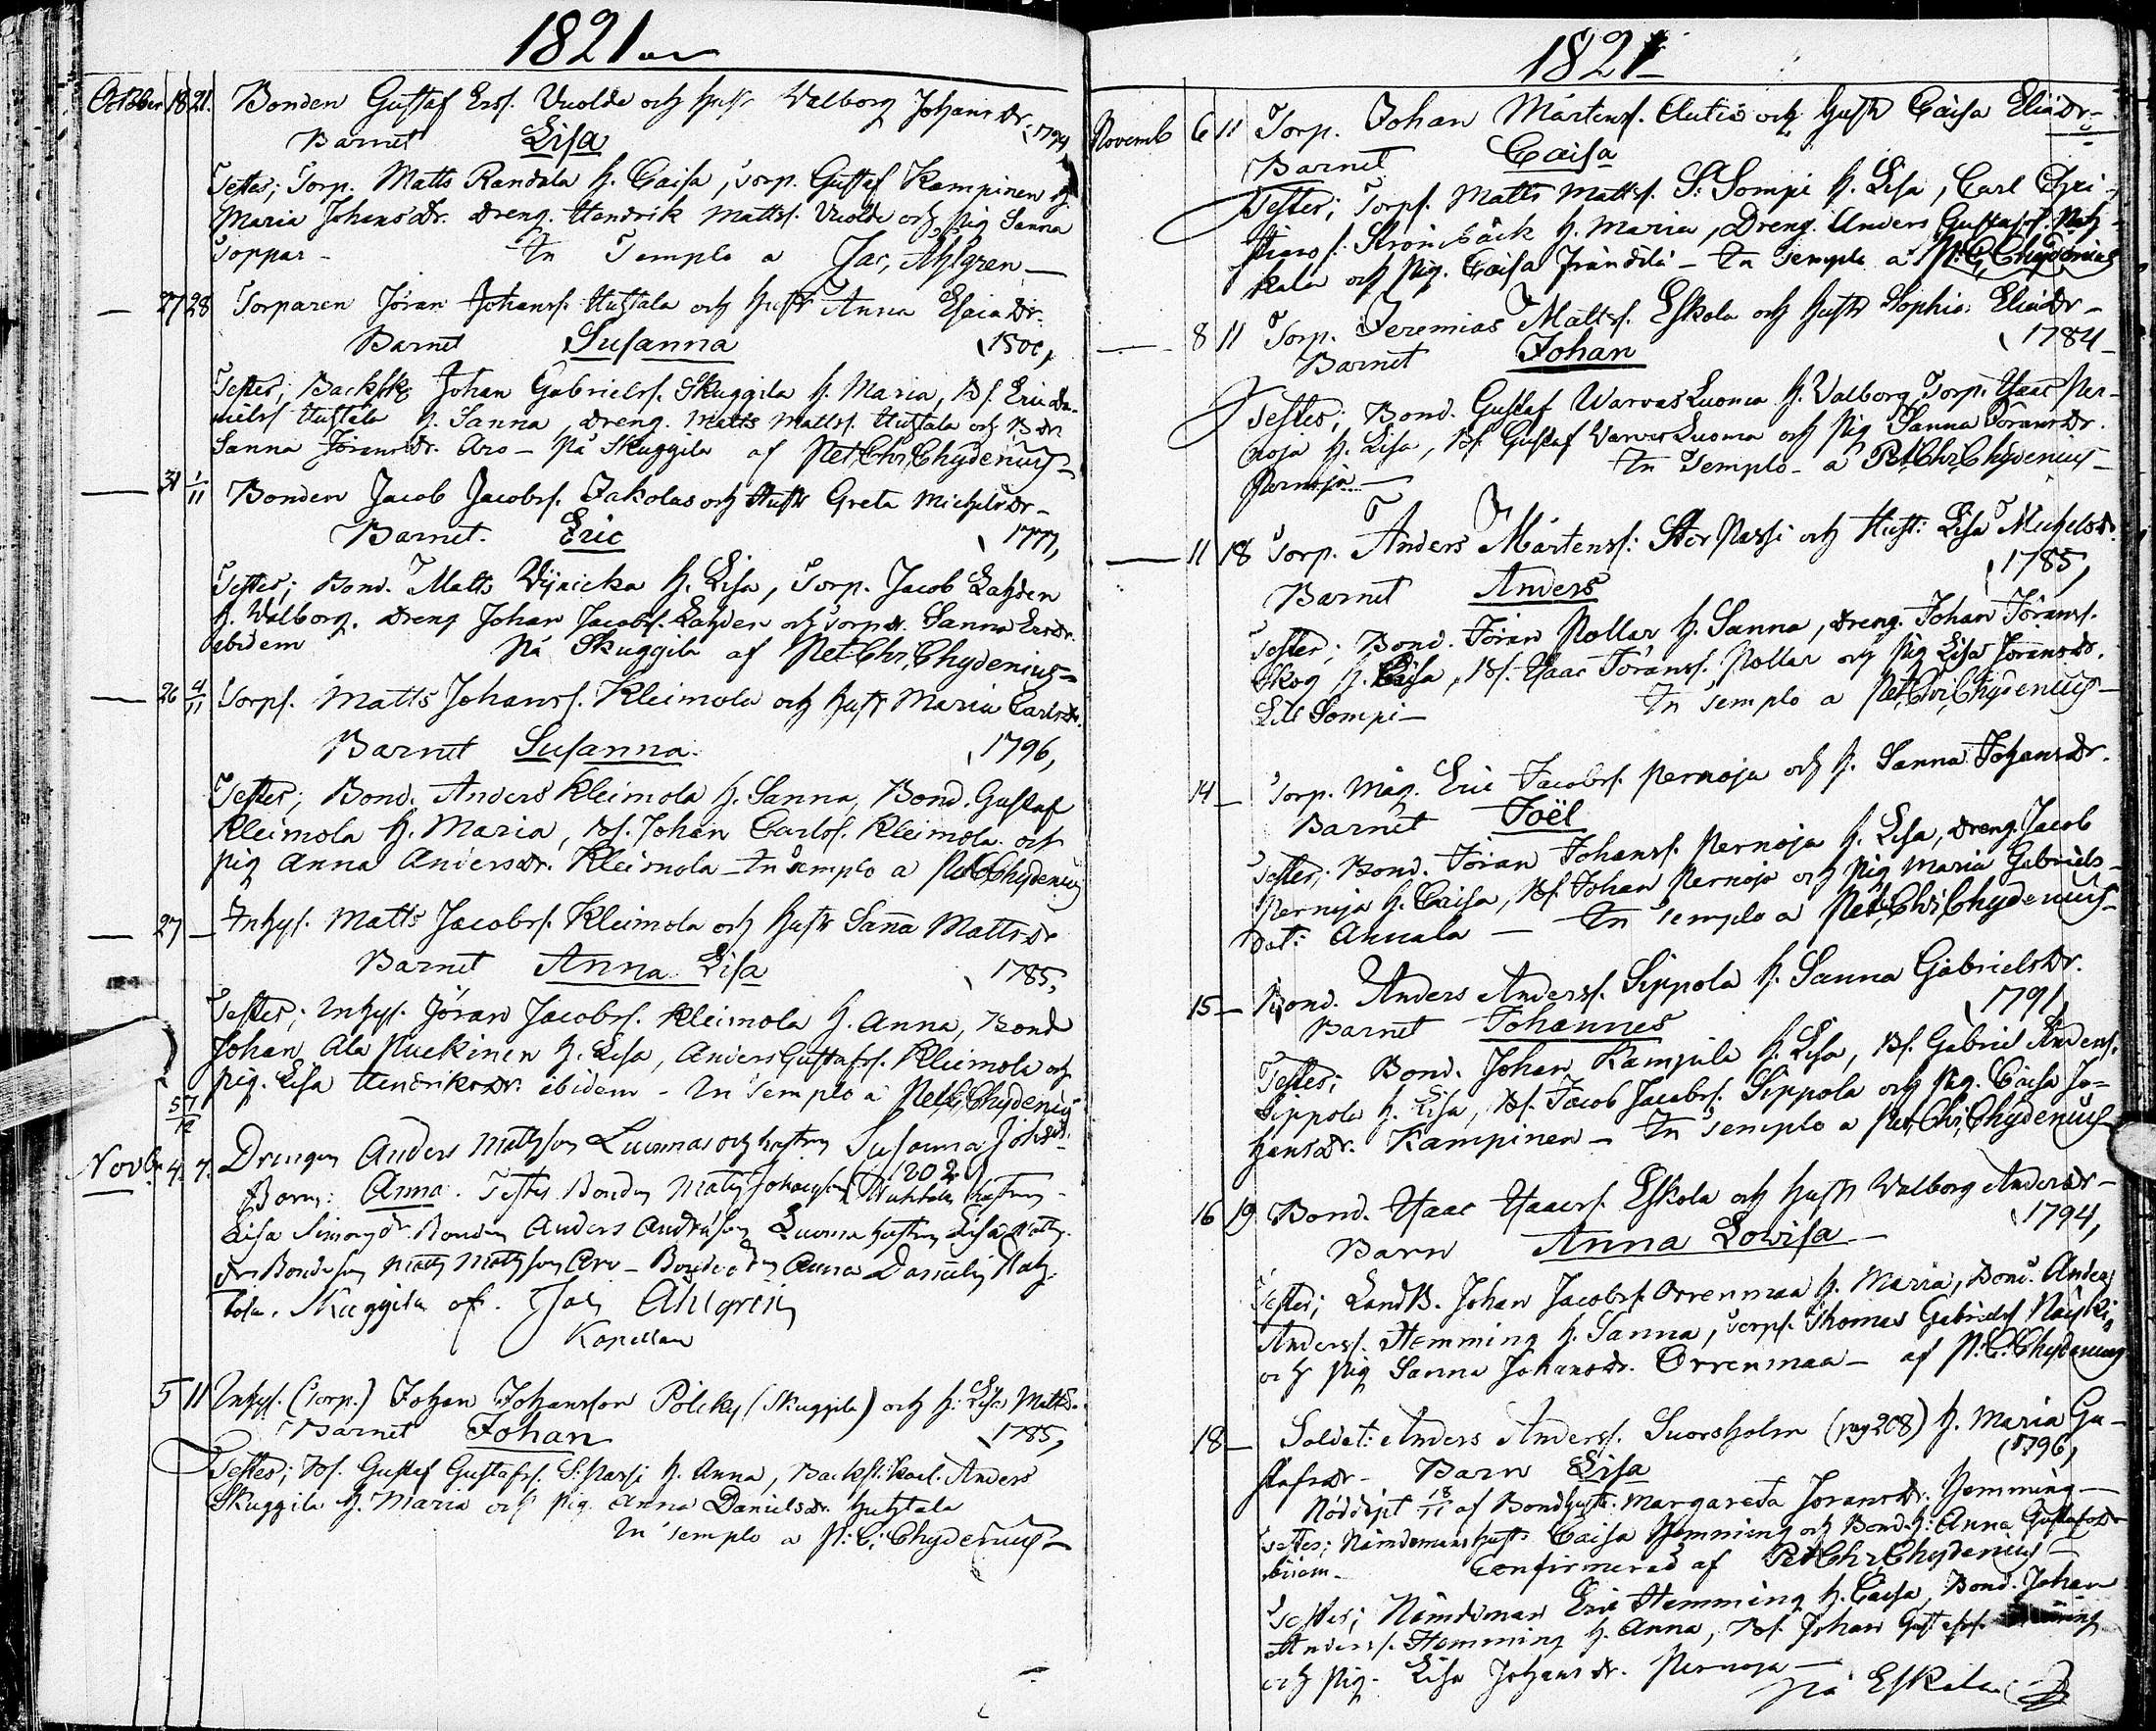 1821
October 18 21. Bonden Gustaf Erss. Uvolde och hustr Walborg Johansdr.
Barnet Lisa 1794,
Testes; Torp. Matts Randala h. Caisa, Torp. Gustaf Kampinen h.
Maria Johansdr. Dreng. Hendrik Mattss. och pig Sanna
Soppar - In Templo a Jac, Ahlgren
27 28 Torparen Jöran Johanss. Huhtala och hustr Anna Esaiædr.
Barnet Susanna
Testes; Backstk Johan Gabrielss. Skuggila h. Maria, Bs. Eric Da-
nielss Huhtala h. Sanna, Dreng. Matts Mattss. Huhtala och Bdr.
Sanna Jöransdr. Aro - På Skuggila af Pet, Chr, Chydenius
31 1/11 Bonden Jacob Jacobss. Jakolas och Hustr Greta Michelsdr -
Barnet. Eric 1777,
Testes; Bond. Matts h. Lisa, Torp. Jacob Lahden
h. Walborg. Dreng Johan Jacobss. Lahden och Torpdr. Sanna Ersdr.
ibidem På Skuggila af Pet Chr, Chydenius
26 4/11 Torps. Matts Johanss. Kleimola och hustr Maria Carlsdr.
Barnet Susanna. 1796,
Testes; Bond. Anders Kleimola h. Sanna, Bond. Gustaf
Kleimola h. Maria, Bs. Johan Carlss. Kleimola och
pig Anna Andersdr. Kleimola - In Templo a Pet C Chydenius
27 - Inhys. Matts Jacobss. Kleimola och hustr Sanna Mattsdr
Barnet Anna Lisa 1785,
Testes; Inhys. Jöran Jacobss. Kleimola h. Anna, Bond
Johan Ala h. Lisa, Anders Gustafss. Kleimola och
pig. Lisa Hendriksdr. ibidem - In Templo a Pet, C, Chydenius
57/12
Novbr 4. 7. Drengen Anders Mattsson Luomas och hustrun Susanna Johsdr.
Barn: Anna. Testes Bonden Matts Johansson Huhtala hustrun 1802
Lisa Simonsdr. Bonden Anders Andersson Luoma hustrun Lisa Matts-
dr. Bondeson Matts Mattsson Aro - Bondedr Anna Danielsdr Huh-
tala. Skuggila af. Jac Ahlgren
Kapellan
5 11 Inhys. (Torp.) Johan Johansson Pölcky (Skuggila) och h. Lisa Mattsdr.
Barnet Johan 1785,
Testes; Bs. Gustaf Gustafss. S: Passi h. Anna, Backst. karl. Anders
Skuggila h. Maria och pig. Anna Danielsdr. Huhtala
In Templo a P: C: Chydenius
1821
Novemb 6 11 Torp. Johan Mårtenss. Autio och hustr Caisa Eliædr -
Barnet Caisa
Testes; Torps. Matts Mattss. S: Sompi h. Lisa, Carl Chri-
stians s. Strömbäck h. Maria, Dreng. Anders Gustafss.
kala och pig. Caisa Frändilä - In Templo a P: C, Chydenius
8 11 Torp. Jeremias Mattss. Eskola och hustr Sophia Eliædr -
Barnet Johan 1784
Testes; Bond. Gustaf Warvas Luoma h. Walborg, Torp. Isaac Per-
noja h. Lisa, Bs. Gustaf Warvas Luoma och pig Sanna Jöransdr.
Pernoja - In Templo - a Pet Chr, Chydenius
11 18 Torp. Anders Mårtenss: Stor Passi och Hust: Lisa Michelsdr.
Barnet Anders 1785,
Testes; Bond. Jöran Pollar h. Sanna, Dreng. Johan Jöranss.
Skog h. Lisa, Bs. Isaac Jöranss. Pollar och pig Lisa Jöransdr.
Lill Sompi - In Templo a Pet, Chr, Chydenius
14 - Torp. Måg. Eric Jacobss. Pernoja och h. Sanna Johansdr.
Barnet Joël
Testes; Bond. Jöran Johanss. Pernoja h. Lisa, Dreng. Jacob
Pernoja h. Caisa, Bs. Johan Pernoja och pig Maria Gabriels-
dot: Ahuala - In Templo a Pet, Chr, Chydenius
15 - Bond. Anders Anderss. Sippola h. Sanna Gabrielsdr.
Barnet Johannes 1791,
Testes; Bond. Johan Kampila h. Lisa, Bs. Gabriel Anderss.
Sippola h. Lisa, Bs. Jacob Jacobss. Sippola och pig. Caisa Jo-
hansdr. Kampinen - In Templo a Pet, Chr, Chydenius
16 19 Bond. Isaac Isaacss. Eskola och hustr Walborg Andersdr -
Barn Anna Lowisa 1794,
Testes; LandB. Johan Jacobss. Orrenmaa h. Maria, Bond. Anders
Anderss. Hemming h. Sanna, Torps. Thomas Gabrielss
och pig Sanna Johansdr. Orrenmaa - af P. C. Chydenius
18 - Soldat: Anders Anderss. Suorsholm (pag 208) h. Maria Gu-
stafsdr - Barn Lisa 1796,
Nöddöpt 18/11 af Bondhustr. Margareta Jöransdr. Hemming -
Testes; Nämdemans hustr Caisa Hemming och Bond. h: Anna Gustafsdr
ibidem - Confirmerad af Pet Chr Chydenius -
Testes; Nämdeman Eric Hemming h. Caisa, Bond. Johan
Anderss. Hemming h. Anna, Bs. Johan Gustafss.
och pig. Lisa Johansdr. Pernoja -
på Eskola